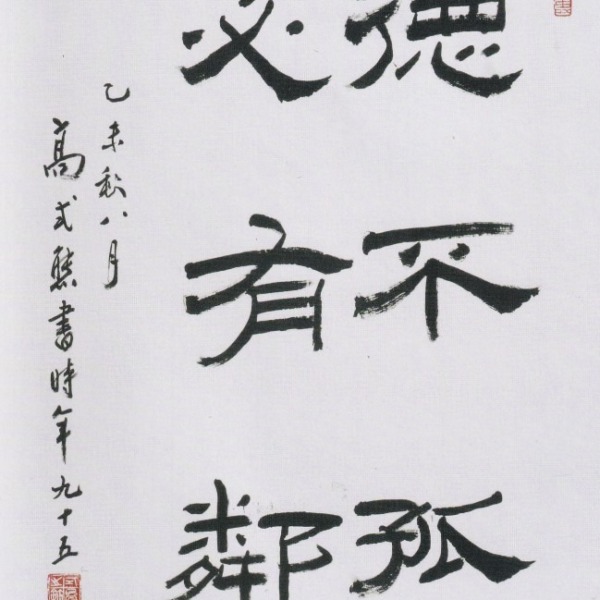 德不孤
必有鄰
乙未秋八月
高式熊書時年九十五